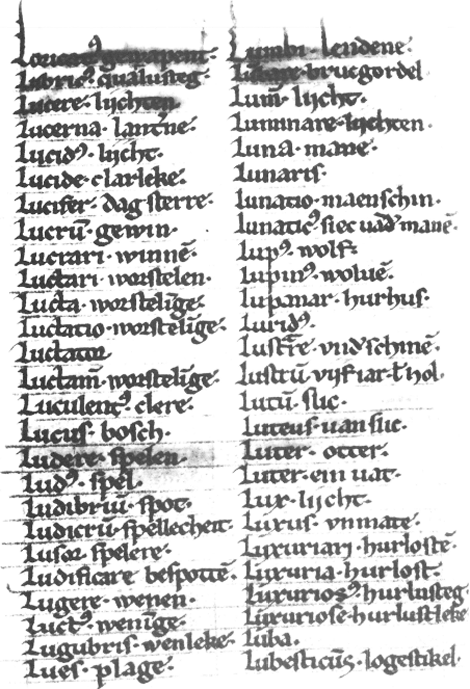 Loricatꝰ gewapent·
Lubricꝰ qualusteg·
Lucere· lijchten
Lucerna· lant̄ne·
Lucidꝰ· lijcht·
Lucide· clarleke·
Lucifer· dag sterre·
Lucrū· gewin·
Lucrari· winnē·
Luctari· worstelen·
Lucta· worstelīge·
Luctatio· worstelīge·
Luctator
Luctam̄· worstelīge·
Luculentꝰ· clere·
Lucus· bosch·
Ludere· spelen
Ludꝰ· spel·
Ludibriū· spot·
Ludicrū· spellecheit·
Lusor spelere·
Ludificare bespottē·
Lugere· wenen·
Luctꝰ· wenīge·
Lugubris· wenleke·
Lues· plage·
Lumbi· lendene·
brucgordel
Lum̄· lijcht·
Luminare· lijchten·
Luna· mane·
Lunaris·
Lunatio· maenschin·
Lunaticꝰ siec uād' manē·
Lupꝰ· wolf·
Lupinꝰ· woluē·
Lupanar· hurhus·
Luridꝰ·
Lustr̄e· vnd'schinē·
Lustrū· vijf iar t' hol·
Lutū· slic·
Luteus· uan slic·
Luter· otter·
Luter· ein uat·
Lux· lijcht·
Luxus· vnmate·
Luxuriari· hurlostē·
Luxuria· hurlost·
Luxuriosꝰ· hurlusteg·
Luxuriose· hurlustleke
Luba·
logestikel·